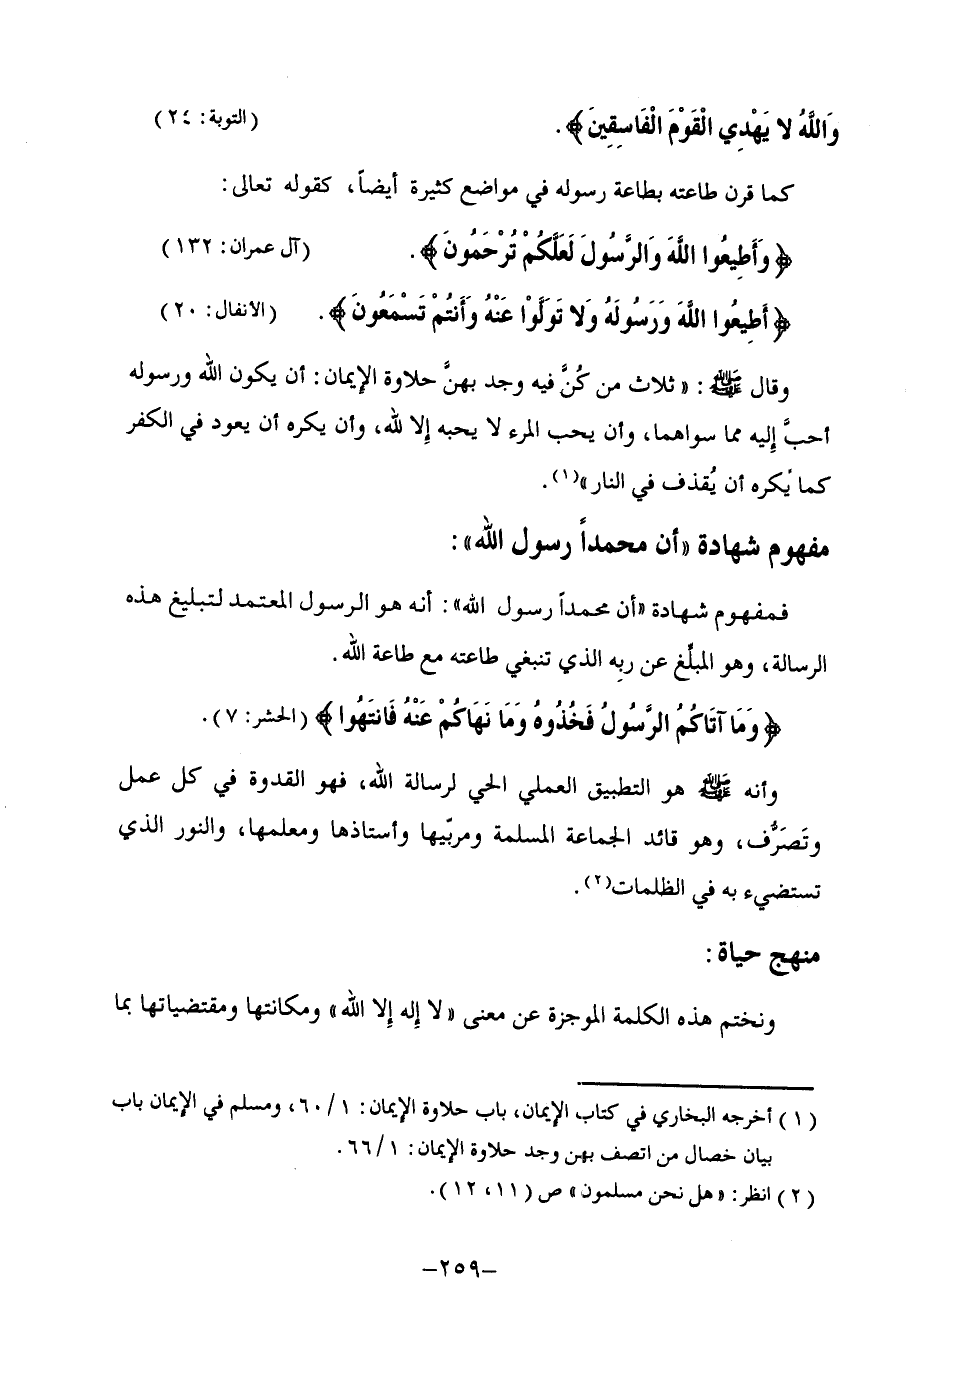 وَاللَّهُ لا يَهْدِي الْقَوْمَ الْفَاسِقِينَ﴾. (التوبة: ٢٤)
كما قرن طاعته بطاعة رسوله في مواضع كثيرة أيضاً، كقوله تعالى:
﴿وَأَطِيعُوا اللَّهَ وَالرَّسُولَ لَعَلَّكُمْ تُرْحَمُونَ﴾. (آل عمران: ١٣٢)
﴿أَطِيعُوا اللَّهَ وَرَسُولَهُ وَلا تَوَلَّوْا عَنْهُ وَأَنتُمْ تَسْمَعُونَ﴾. (الأنفال: ٢٠)
وقال ﷺ: «ثلاث من كُنَّ فيه وجد بهنَّ حلاوة الإيمان: أن يكون الله ورسوله
أحبَّ إليه مما سواهما، وأن يحب المرء لا يحبه إلا لله، وأن يكره أن يعود في الكفر
كما يُكره أن يُقذف في النار»(١).
مفهوم شهادة «أن محمداً رسول الله»:
فمفهوم شهادة «أن محمداً رسول الله»: أنه هو الرسول المعتمد لتبليغ هذه
الرسالة، وهو المبلِّغ عن ربه الذي تنبغي طاعته مع طاعة الله.
﴿وَمَا آتَاكُمُ الرَّسُولُ فَخُذُوهُ وَمَا نَهَاكُمْ عَنْهُ فَانتَهُوا﴾ (الحشر: ٧).
وأنه ﷺ هو التطبيق العملي الحي لرسالة الله، فهو القدوة في كل عمل
وتَصَرُّف، وهو قائد الجماعة المسلمة ومربّيها وأستاذها ومعلمها، والنور الذي
تستضيء به في الظلمات(٢).
منهج حياة:
ونختم هذه الكلمة الموجزة عن معنى «لا إله إلا الله» ومكانتها ومقتضياتها بما
(١) أخرجه البخاري في كتاب الإيمان، باب حلاوة الإيمان: ١/ ٦٠، ومسلم في الإيمان باب
بيان خصال من اتصف بهن وجد حلاوة الإيمان: ١/ ٦٦.
(٢) انظر: «هل نحن مسلمون» ص (١١، ١٢).
–٢٥٩–